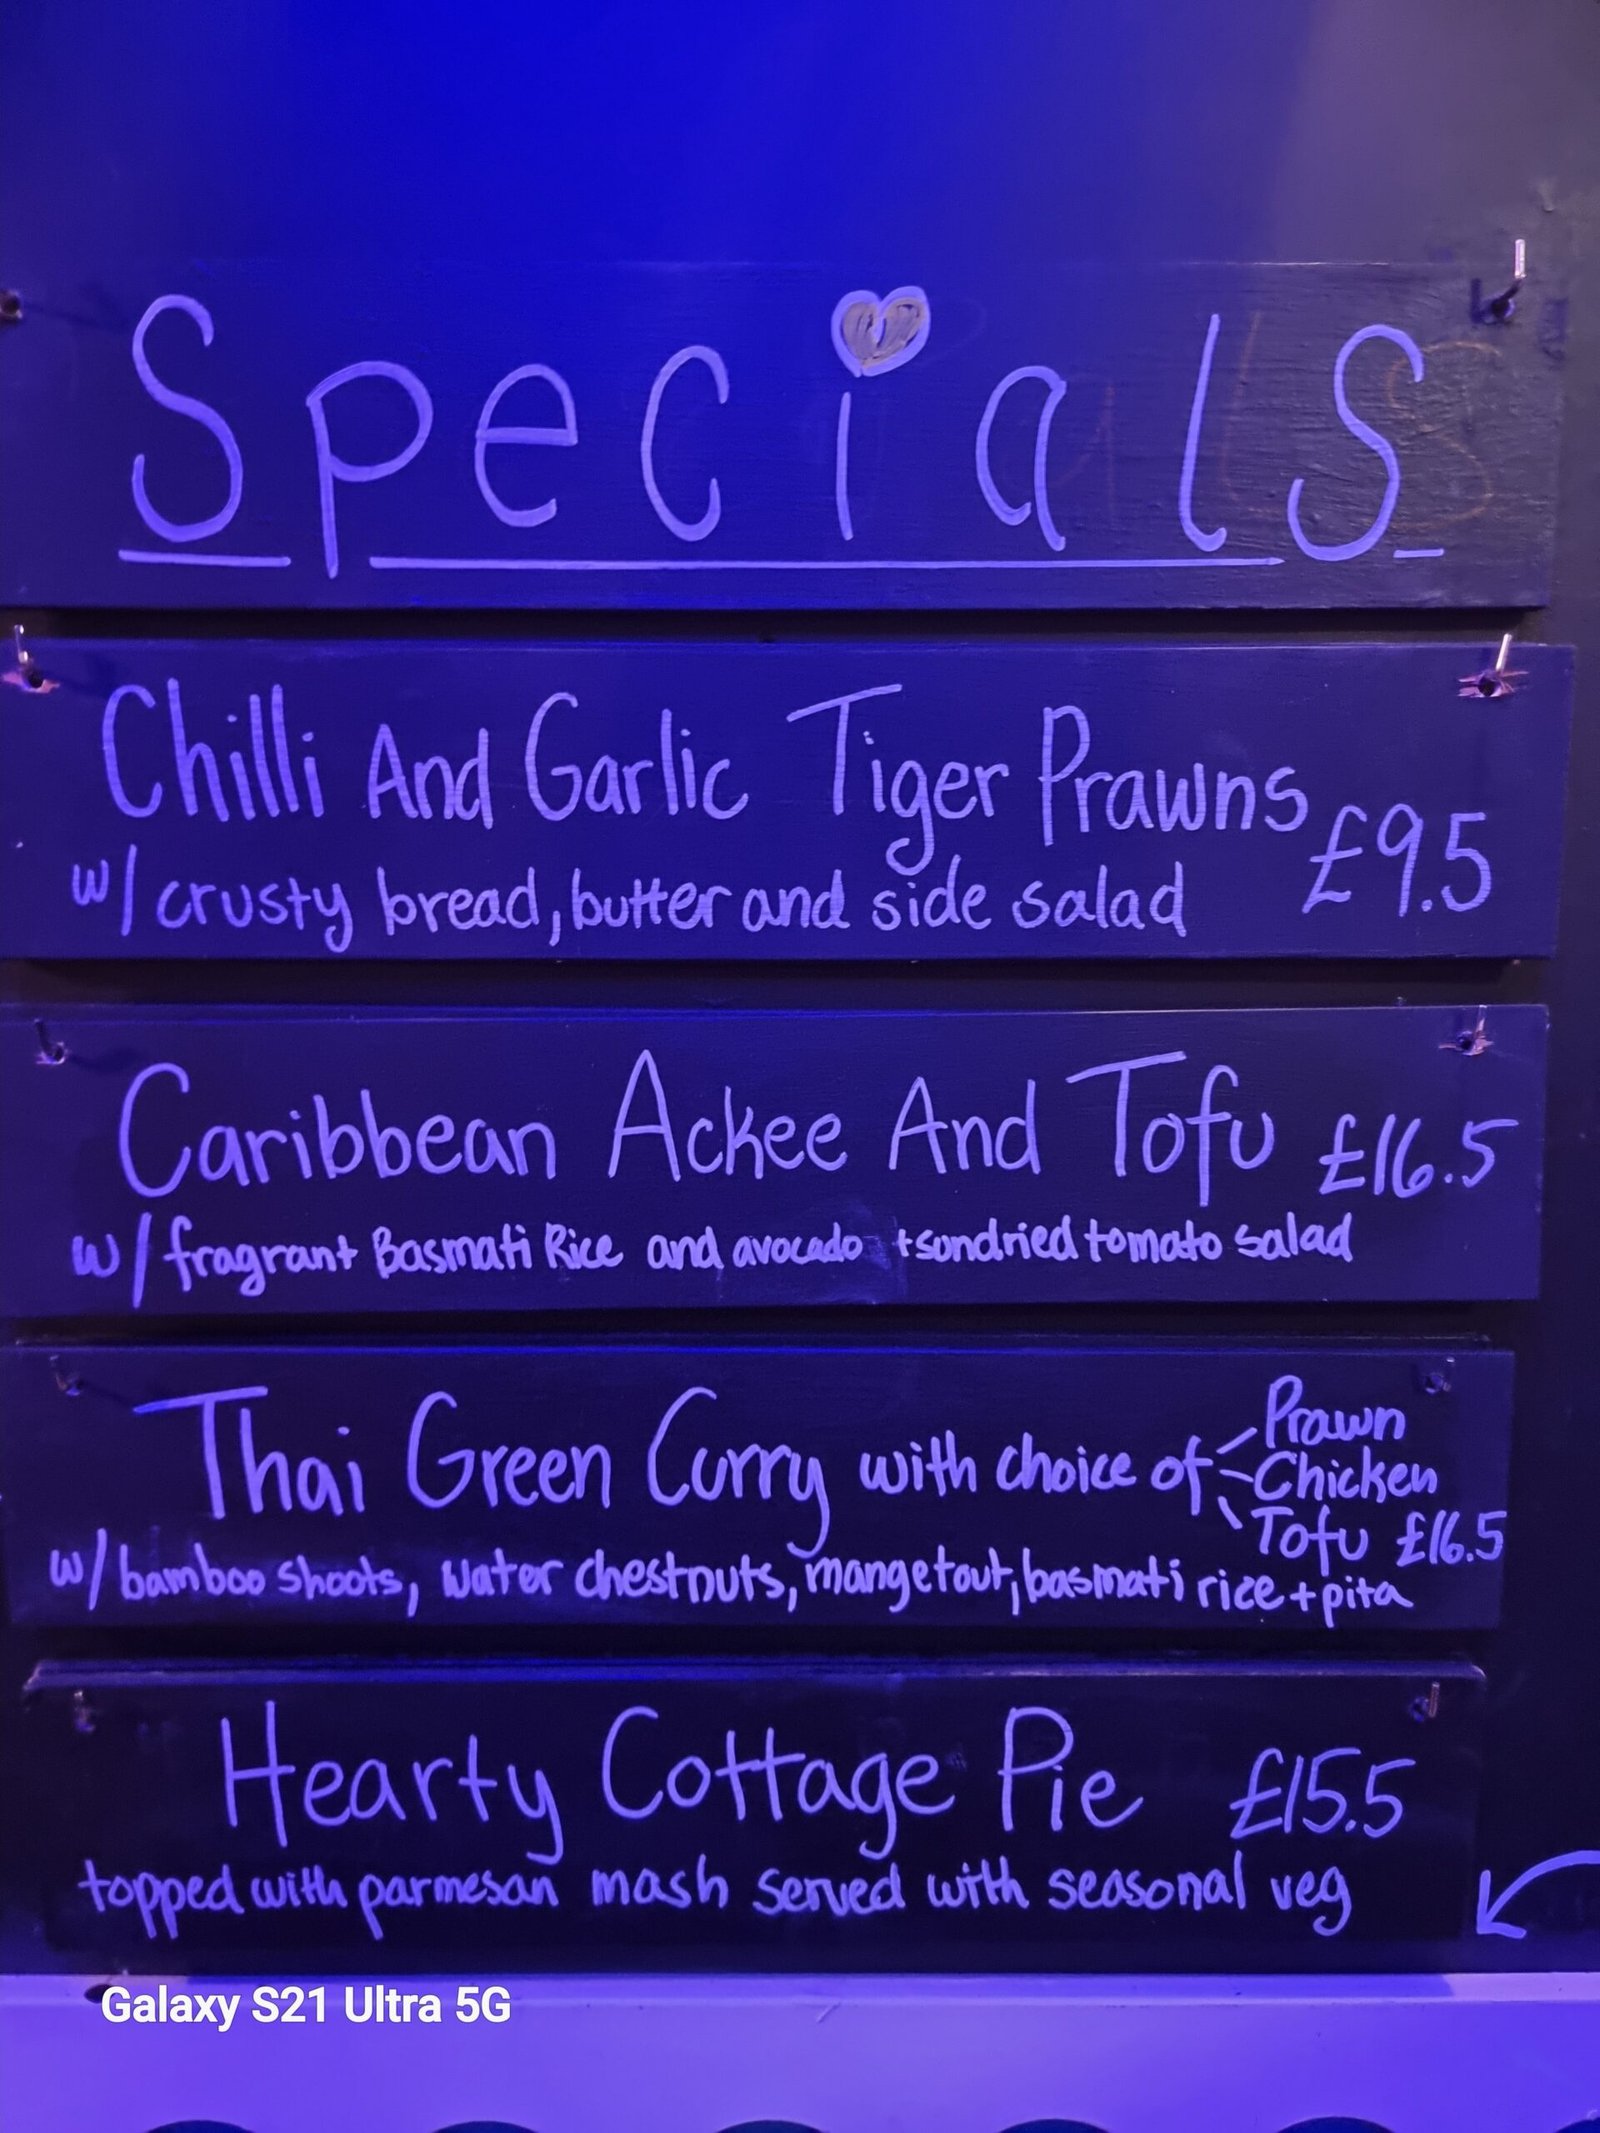 Specials
Chilli And Garlic Tiger Prawns
w/ crusty bread, butter and side salad £9.5
Caribbean Ackee And Tofu £16.5
w/ fragrant Basmati Rice and avocado + sundried tomato salad
Thai Green Curry with choice of
Prawn
Chicken
Tofu £16.5
w/ bamboo shoots, water chestnuts, mangetout, basmati rice + pita
Hearty Cottage Pie £15.5
topped with parmesan mash served with seasonal veg
Galaxy S21 Ultra 5G